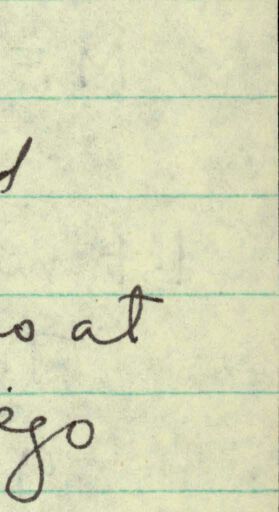 d
o at
ego